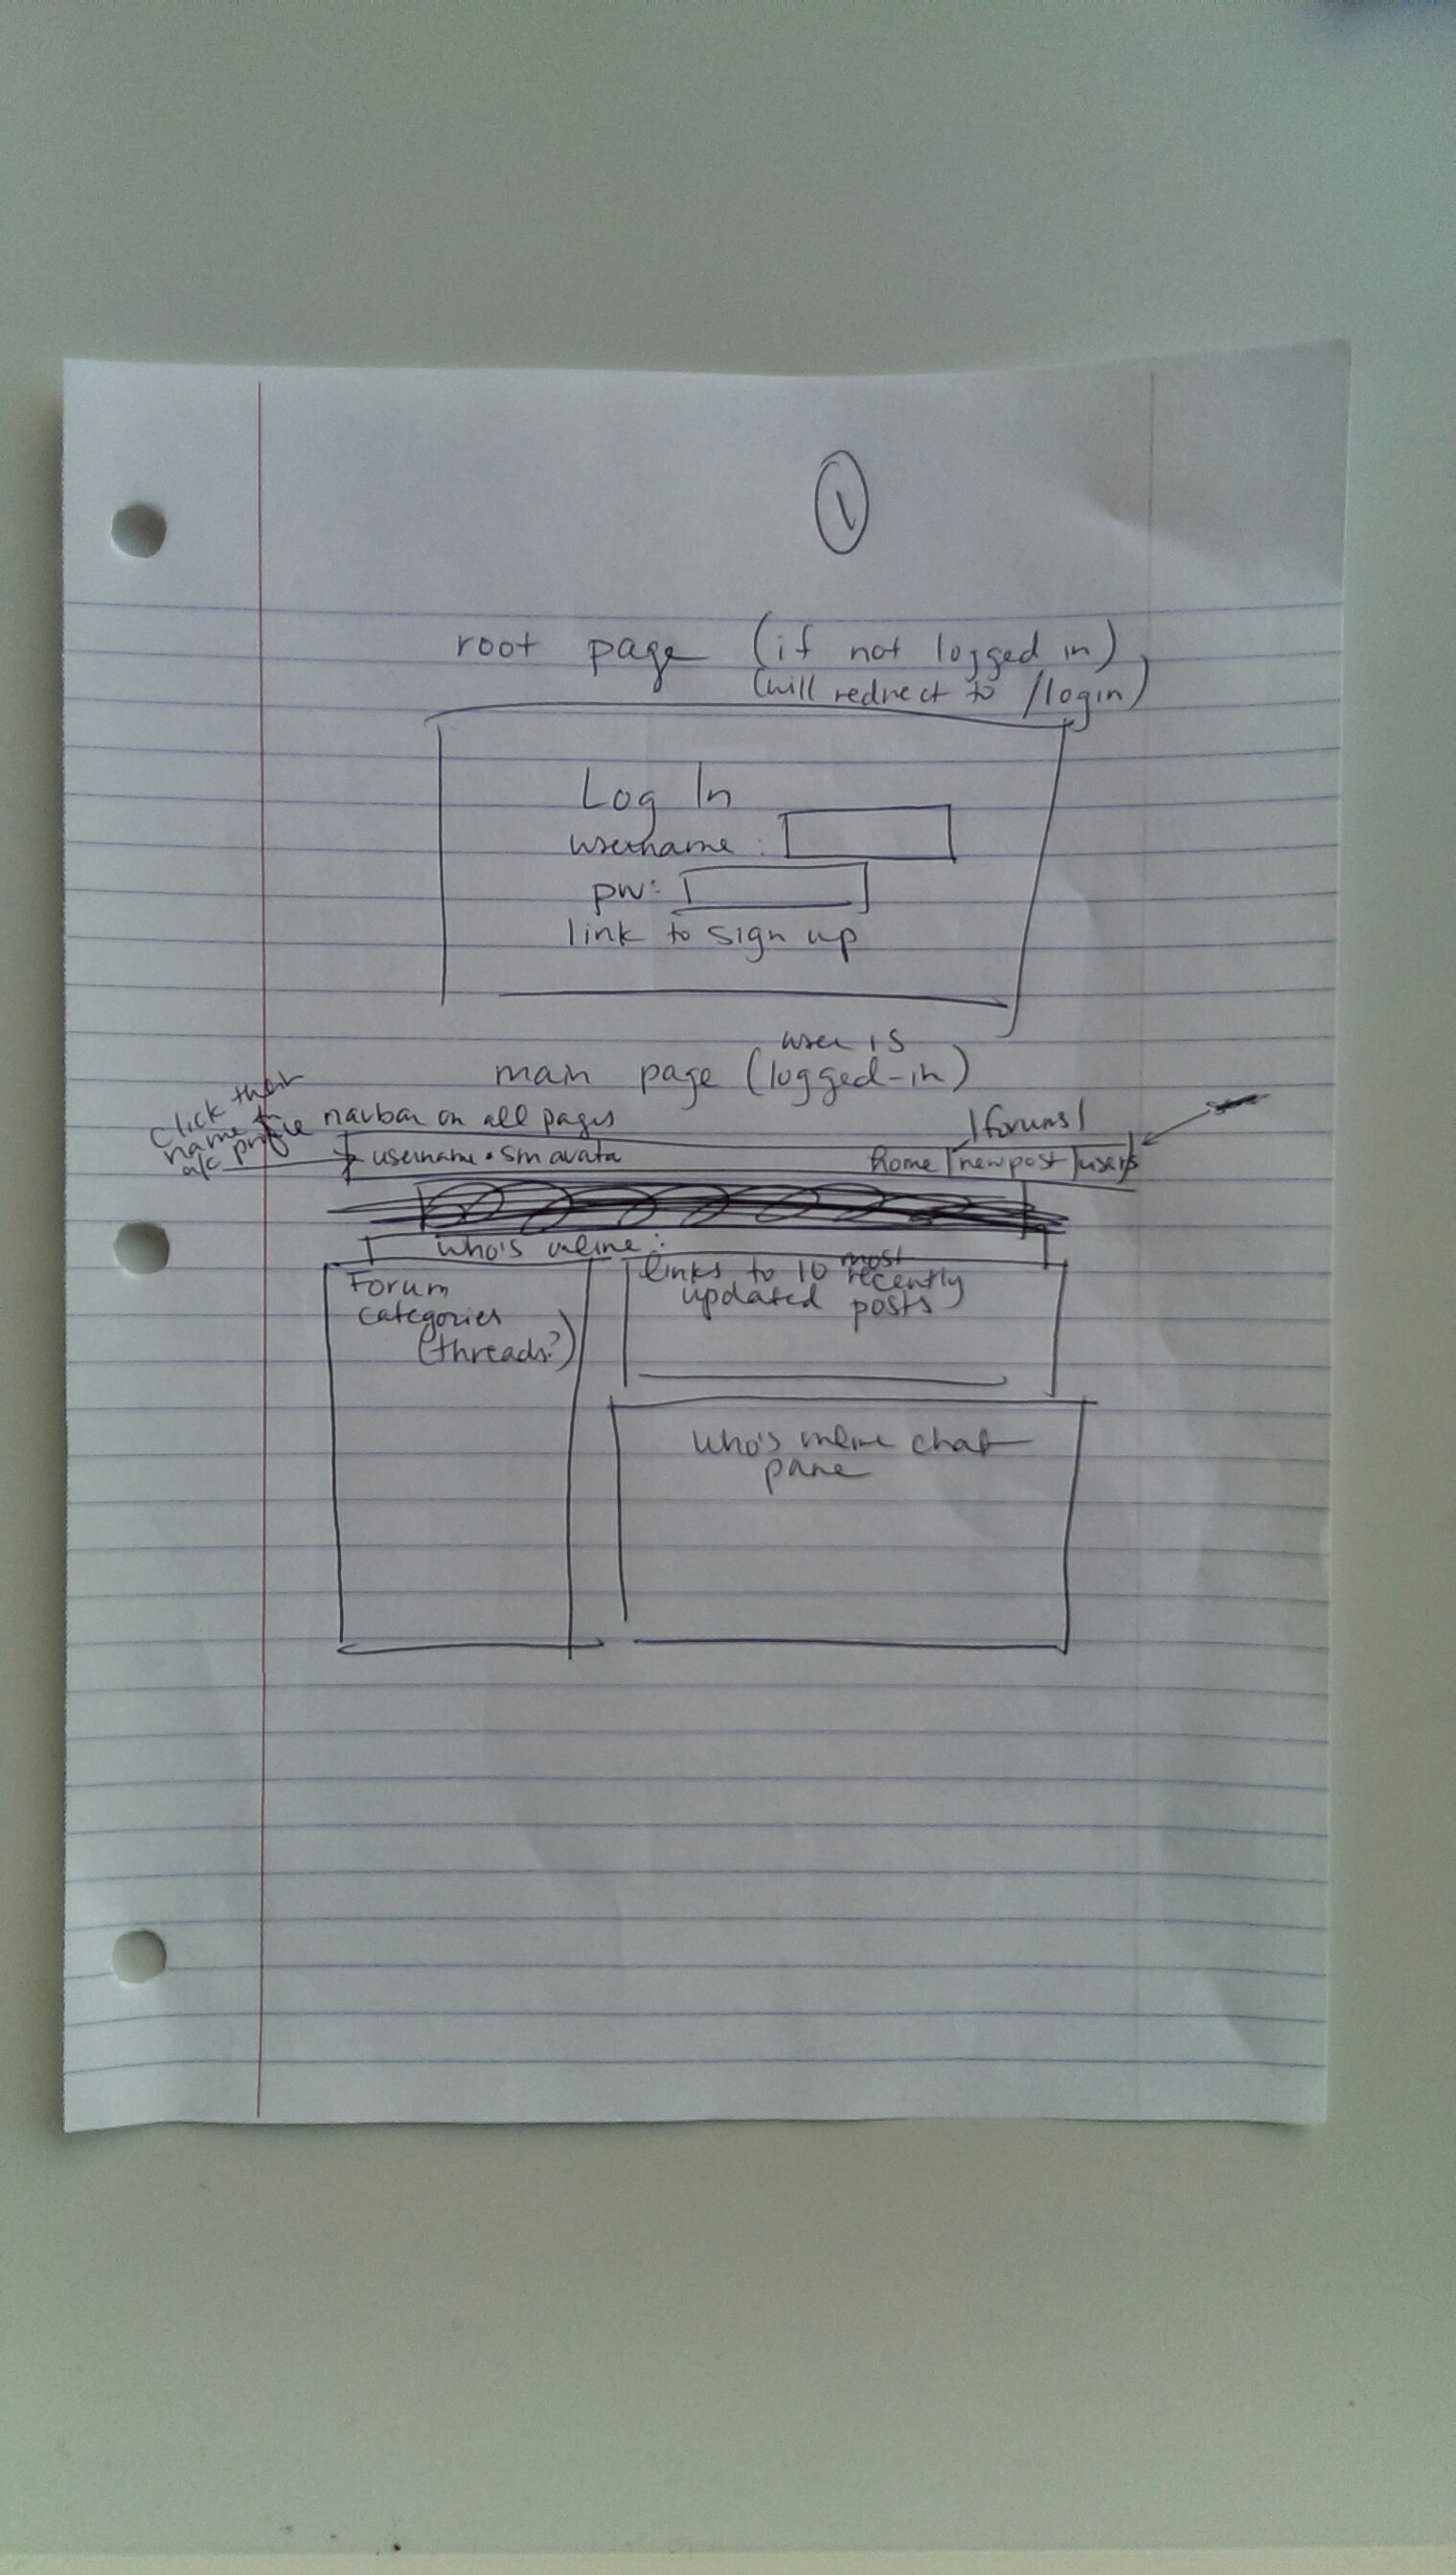 1
root page (if not logged in)
(will redirect to /login)
Log In
username:
pw:
link to sign up
user is
main page (logged-in)
click their
name
a/c profile
navbar on all pages
|forums|
username • sm avata
home | new post | users
who's online:
Forum
categories
(threads?)
links to 10 most
recently
updated posts
who's online chat
pane